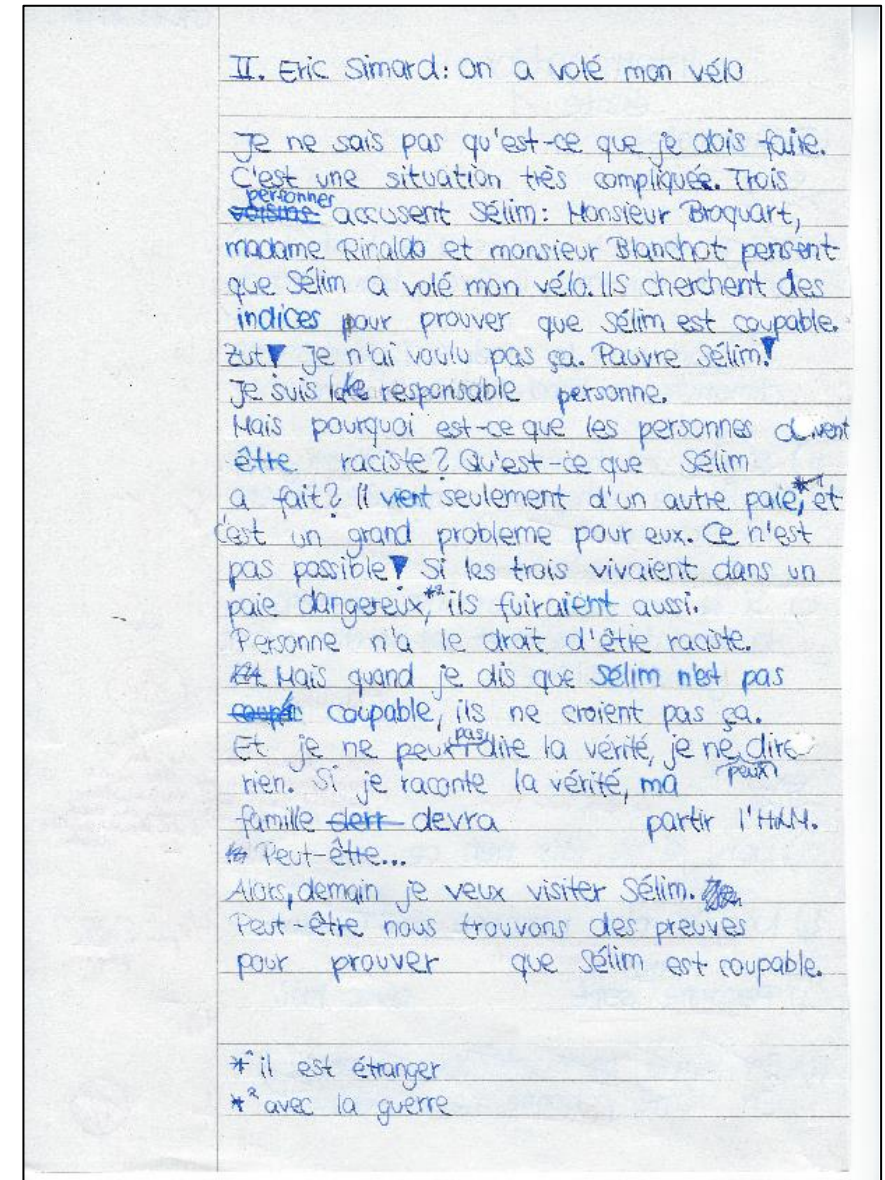 II. Eric Simard: On a volé mon vélo
Je ne sais pas qu'est-ce que je dois faire.
C'est une situation très compliquée. Trois
personnes
voisins accusent Sélim: Monsieur Broquart,
madame Rinaldo et monsieur Blanchot pensent
que Sélim a volé mon vélo. Ils cherchent des
indices pour prouver que Sélim est coupable.
Zut! Je n'ai voulu pas ça. Pauvre Sélim!
Je suis le responsable personne.
Mais pourquoi est-ce que les personnes doivent
être raciste? Qu'est-ce que Sélim
a fait? Il vient seulement d'un autre paie,*1 et
c'est un grand probleme pour eux. Ce n'est
pas possible! Si les trois vivaient dans un
paie dangereux,*2 ils fuiraient aussi.
Personne n'a le droit d'être raciste.
Mais quand je dis que Sélim n'est pas
coupable, ils ne croient pas ça.
Et je ne peux pas dire la vérité, je ne peux dire
rien. Si je raconte la vérité, ma
famille devra partir l'HLM.
Peut-être...
Alors, demain je veux visiter Sélim.
Peut-être nous trouvons des preuves
pour prouver que Sélim est coupable.
*1 il est étranger
*2 avec la guerre